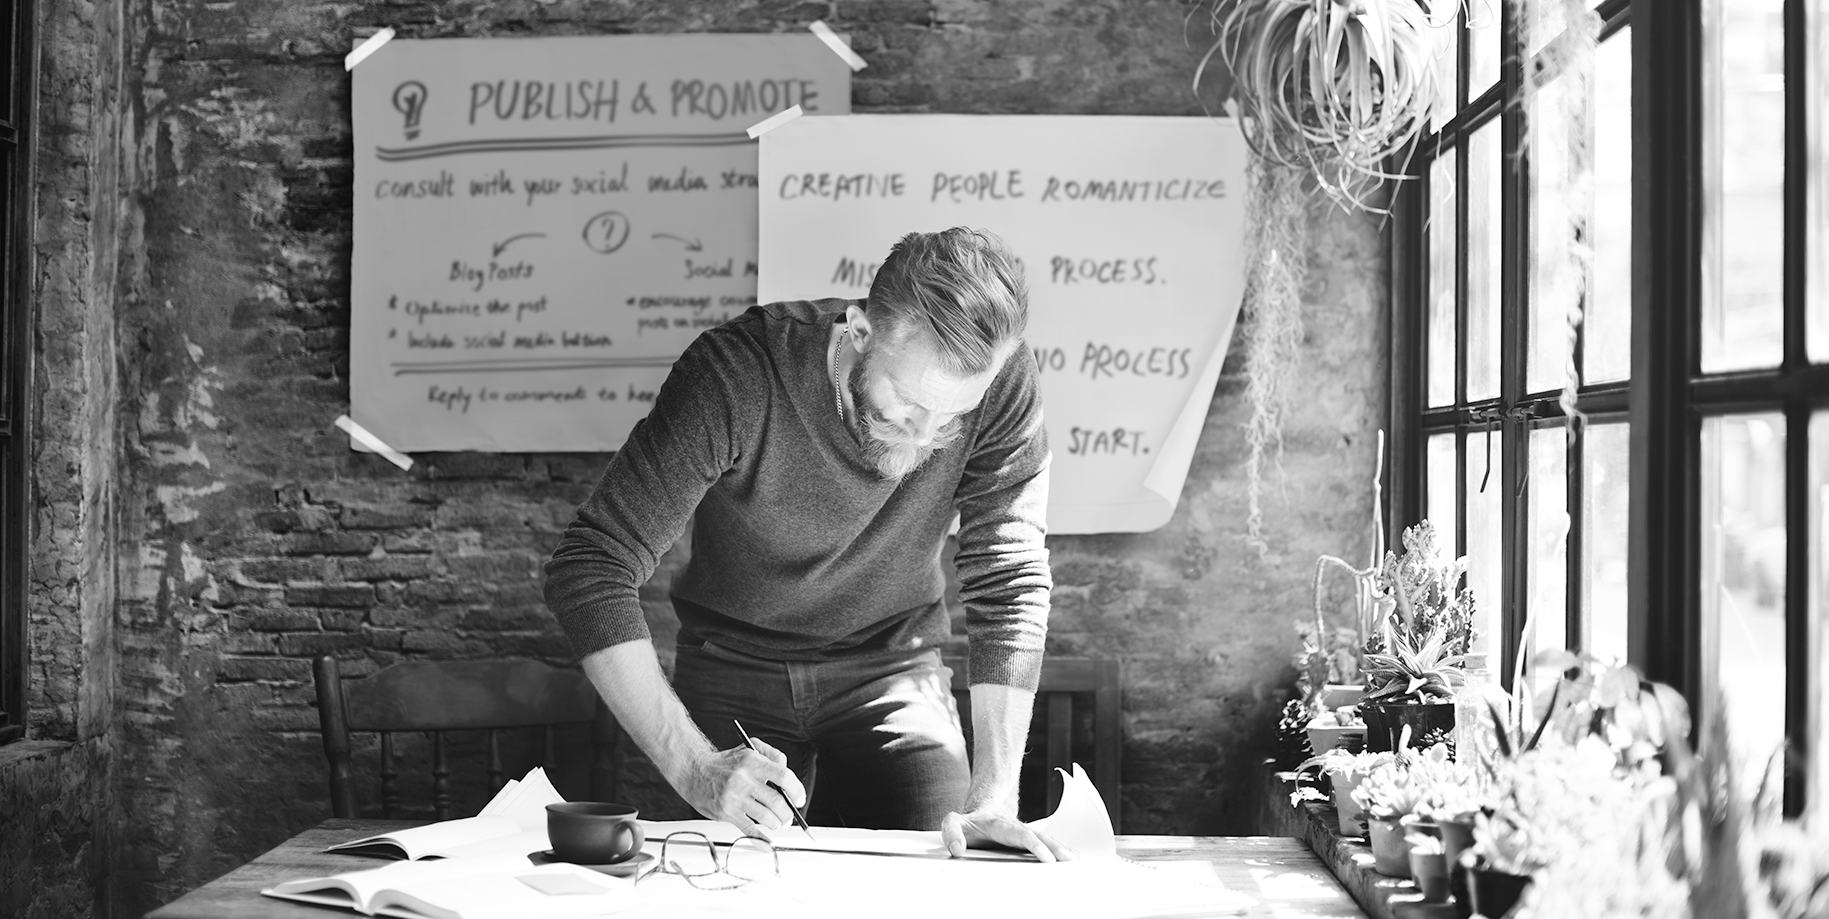 PUBLISH & PROMOTE
consult with your social media stra
?
Blog Posts
Social m
* Optimize the post
* Include social media button
* encourage
posts on
Reply to comments to kee
CREATIVE PEOPLE ROMANTICIZE
MIS PROCESS.
NO PROCESS
START.